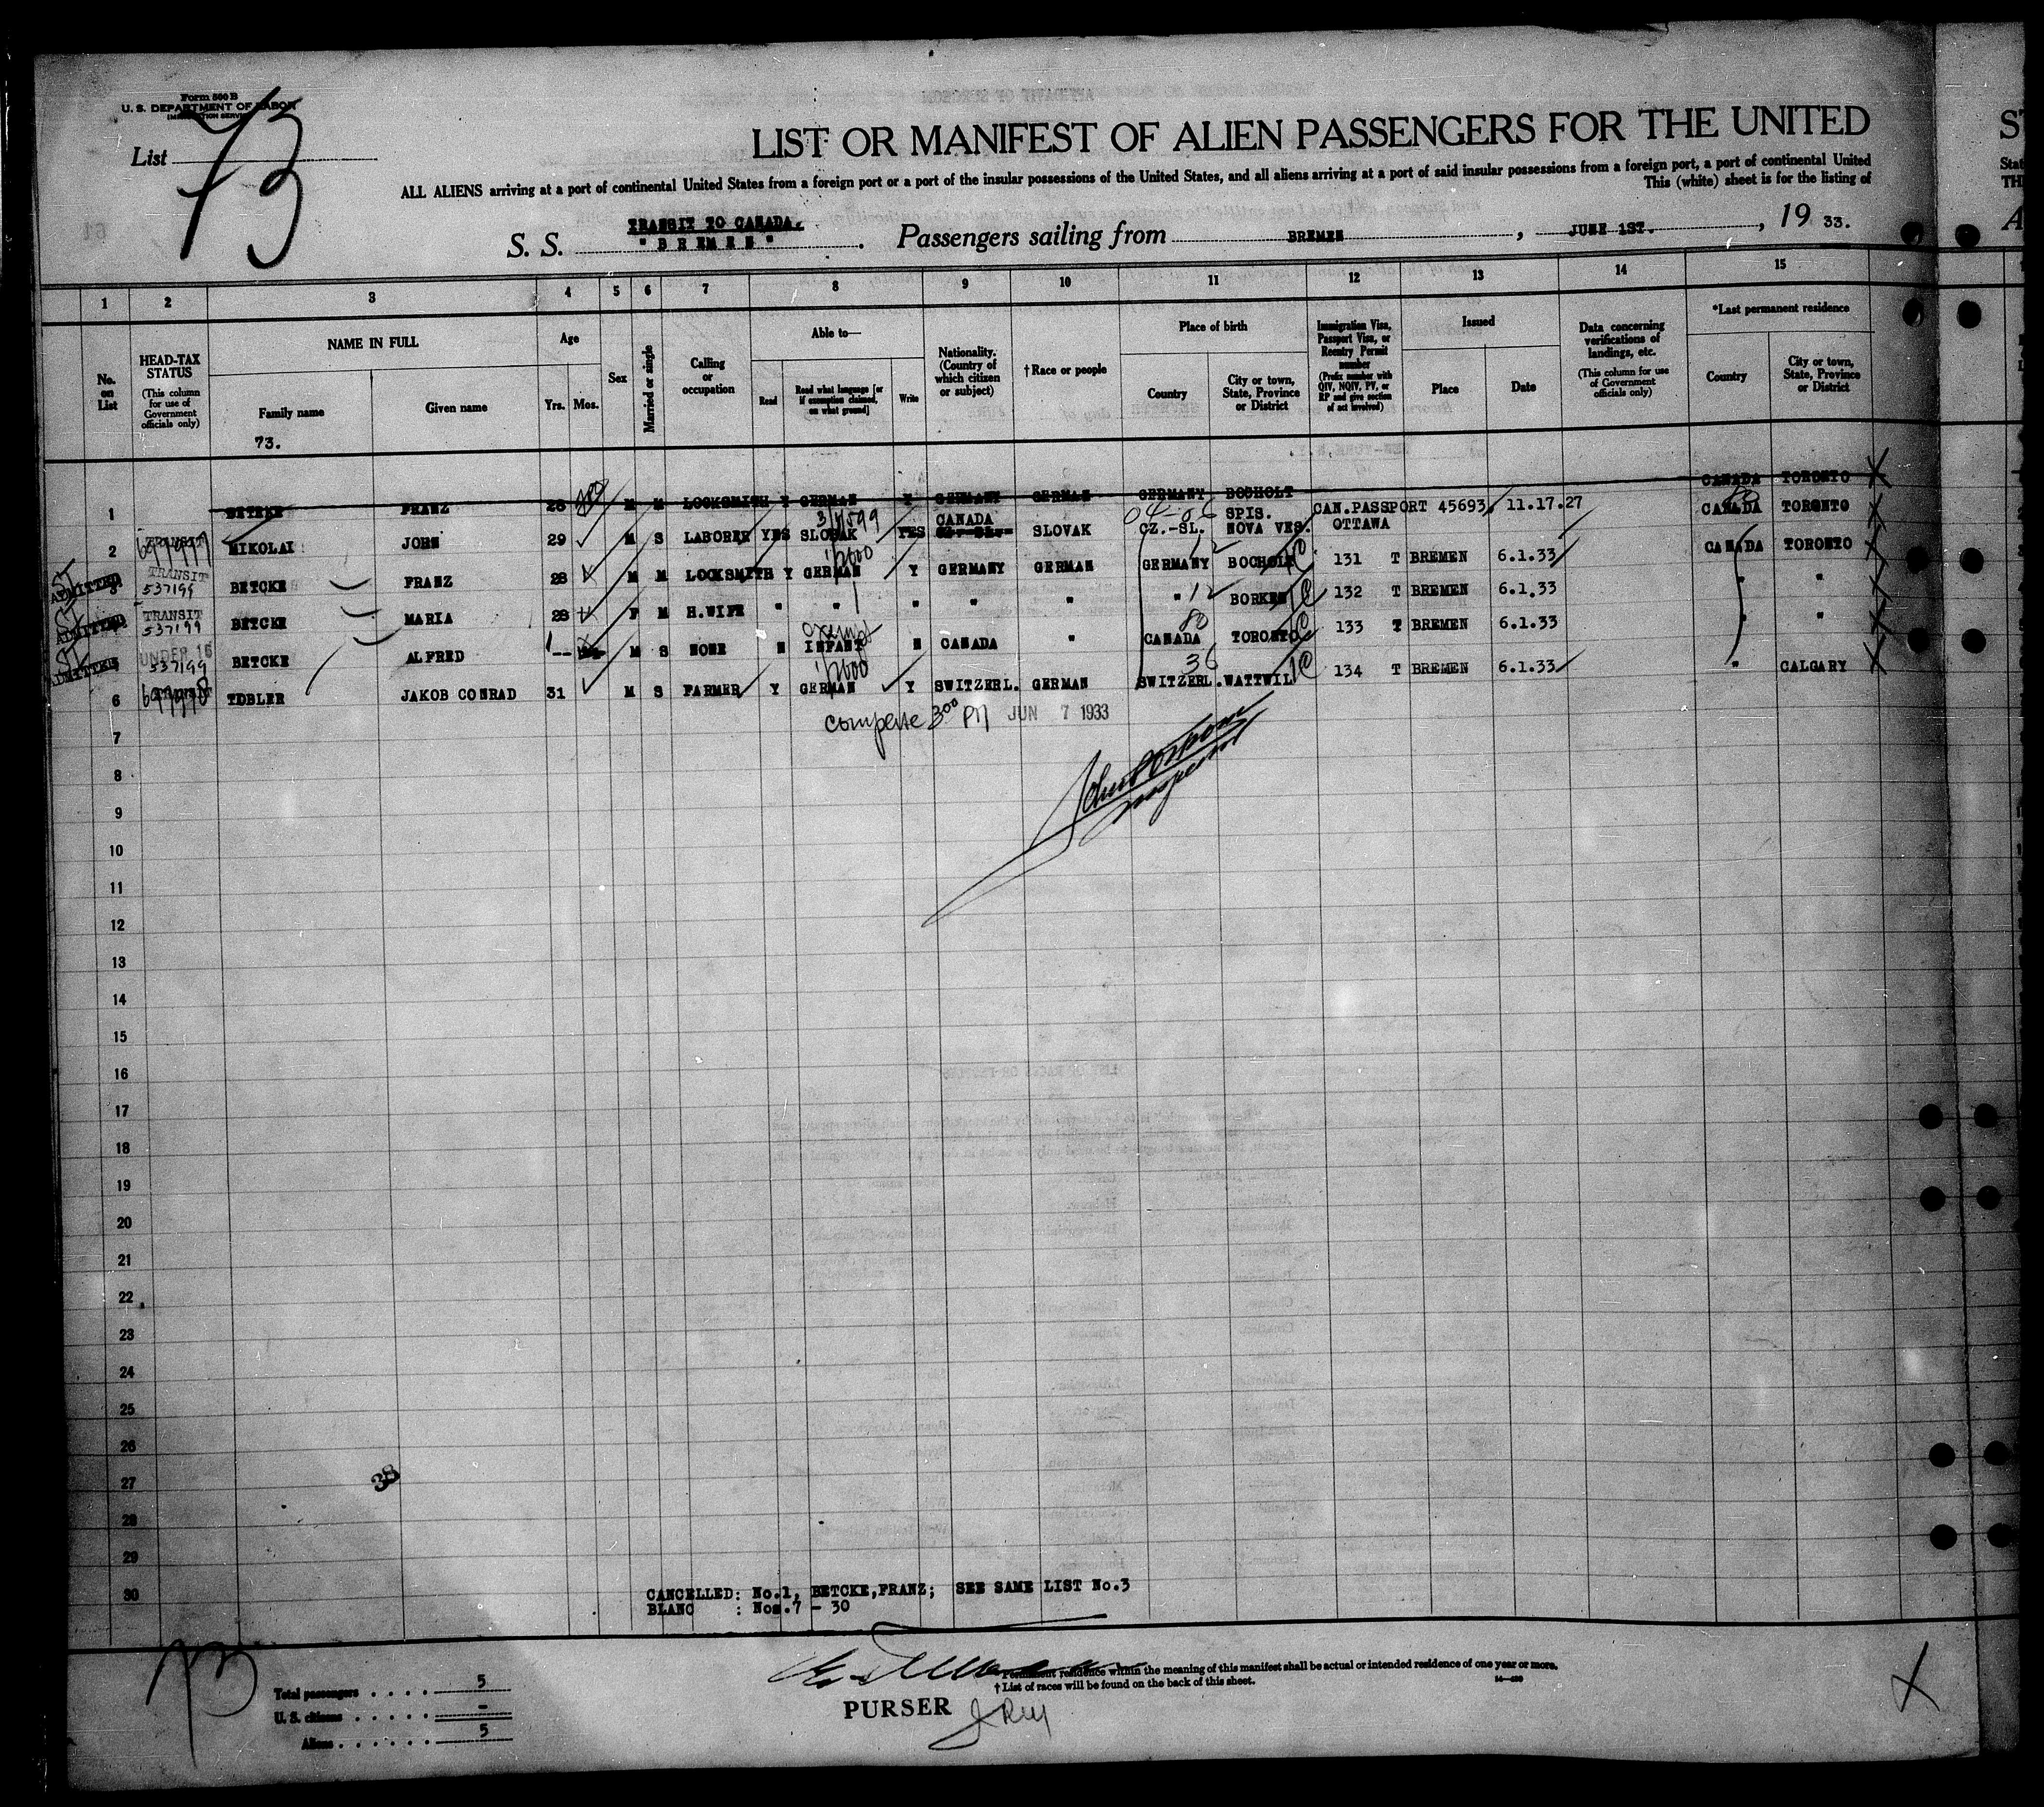 Form 500 B
U. S. DEPARTMENT OF LABOR
IMMIGRATION SERVICE
List 73
LIST OR MANIFEST OF ALIEN PASSENGERS FOR THE UNITED
ALL ALIENS arriving at a port of continental United States from a foreign port or a port of the insular possessions of the United States, and all aliens arriving at a port of said insular possessions from a foreign port, a port of continental United
This (white) sheet is for the listing of
TRANSIT TO CANADA.
S. S. "BREMEN". Passengers sailing from BREMEN, JUNE 1ST., 19 33.
1 2 3 4 5 6 7 8 9 10 11 12 13 14 15
No. on List
HEAD-TAX STATUS (This column for use of Government officials only)
NAME IN FULL
Family name
Given name
Age
Yrs. Mos.
Sex
Married or single
Calling or occupation
Able to—
Read
Read what language [or if exemption claimed, on what ground]
Write
Nationality. (Country of which citizen or subject)
†Race or people
Place of birth
Country
City or town, State, Province or District
Immigration Visa, Passport Visa, or Reentry Permit number (Prefix number with QIV, NQIV, PV, or RP and give section of act involved)
Issued
Place
Date
Data concerning verifications of landings, etc. (This column for use of Government officials only)
*Last permanent residence
Country
City or town, State, Province or District
73.
1 BETCKE FRANZ 28 M M LOCKSMITH Y GERMAN Y GERMANY GERMAN GERMANY BOCHOLT CANADA TORONTO
04-06 SPIS. CAN.PASSPORT 45693, 11.17.27
2 TRANSIT MIKOLAI JOHN 29 M S LABORER YES SLOVAK YES CANADA SLOVAK CZ.-SL. NOVA VES. OTTAWA CANADA TORONTO
3 ADMITTED TRANSIT 537199 BETCKE FRANZ 28 M M LOCKSMITH Y GERMAN Y GERMANY GERMAN GERMANY BOCHOLT 131 T BREMEN 6.1.33 CANADA TORONTO
ADMITTED TRANSIT 537199 BETCKE MARIA 28 F M H.WIFE " " " " " " BORKEN 132 T BREMEN 6.1.33 " "
ADMITTED UNDER 16 537199 BETCKE ALFRED 1 -- M S NONE N INFANT N CANADA " CANADA TORONTO 133 T BREMEN 6.1.33 " "
6 TOBLER JAKOB CONRAD 31 M S FARMER Y GERMAN Y SWITZERL. GERMAN SWITZERL. WATTWIL 134 T BREMEN 6.1.33 " CALGARY
7 3 00 PM JUN 7 1933
8
Inspector
9
10
11
12
13
14
15
16
17
18
19
20
21
22
23
24
25
26
27 38
28
29
30
CANCELLED: No.1, BETCKE,FRANZ; SEE SAME LIST No.3
BLANC : Nos.7 - 30
73
*Permanent residence within the meaning of this manifest shall be actual or intended residence of one year or more.
†List of races will be found on the back of this sheet.
PURSER
Total passengers . . . . 5
U. S. citizens . . . . . -
Aliens . . . . . . 5
X